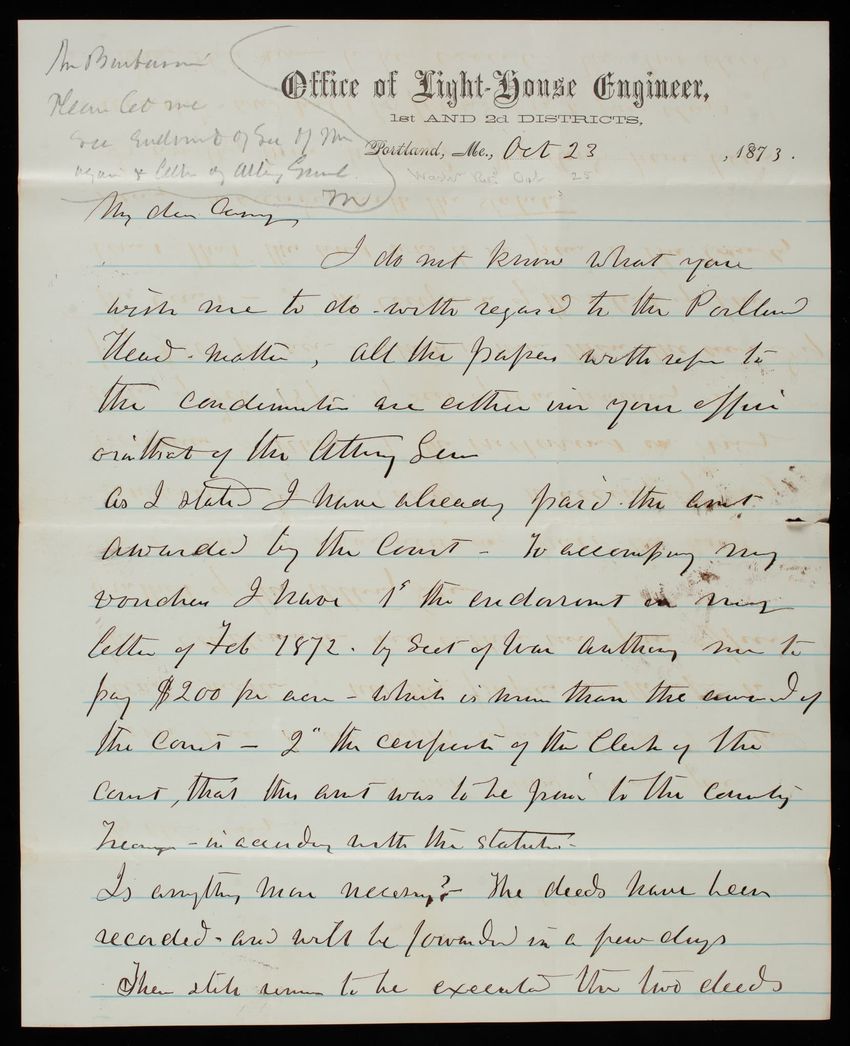 Please let me
see Endsmt of Sec of War
again & letter of Atty Genl.
M
Office of Light-House Engineer,
1st AND 2d DISTRICTS,
Portland, Me., Oct 23, 1873.
Oct 25
My dear Casey
I do not know what you
wish me to do - with regard to the Portland
Head - matter, all the papers with refer to
the condemnation are either in your office
or in that of the Attorney Gen
as I stated I have already paid the amt
awarded by the Court - To accompany my
vouchers I have 1st the endorsement on my
letter of Feb 1872 - by Sect of War authorizing me to
pay $200 per acre - which is more than the award of
the Court - 2" the certificate of the Clerk of the
court, that this amt was to be paid to the County
Treasurer - in accordance with the statutes -
Is anything more necessary? - The deeds have been
recorded - and will be forwarded in a few days
There still remains to be executed the two deeds